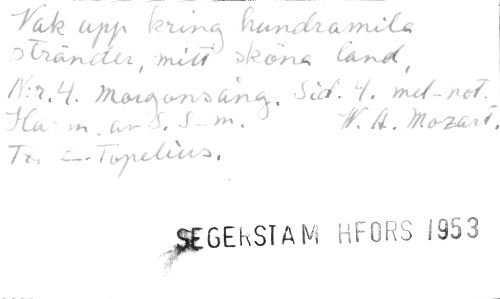 Vak upp kring hundramila
stränder, mitt sköna land,
N:r. 4. Morgonsång. Sid. 4. mel-not.
Harm. av S. S-m. W. A. Mozart.
Tr. Z. Topelius.
SEGERSTAM HFORS 1953